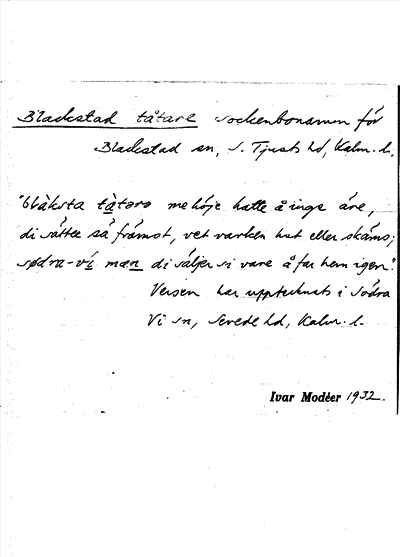 Blackstad tåtare sockenbonamn för
Blackstad sn, S. Tjusts hd, Kalm. l.
"blàksta tàtaro me höje hatte å inge äre,
di sätter så främst, vet varken hut eller skäms;
sødra-ví mæn di säljer si vare å far hem igen."
Versen har upptecknats i Södra
Vi sn, Sevede hd, Kalm. l.
Ivar Modéer 1932.